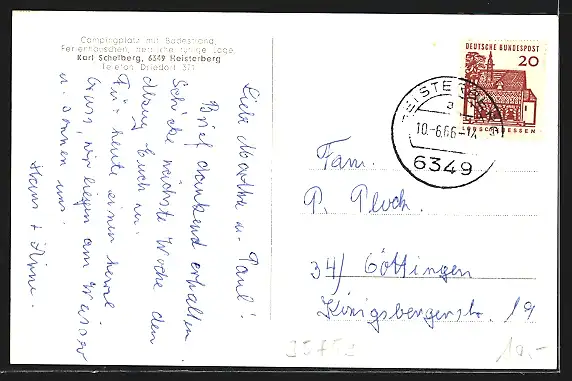 Campingplatz mit Badestrand,
Ferienhäuschen, herrliche ruhige Lage.
Karl Schelberg, 6349 Heisterberg
Telefon Driedorf 371
Liebe Marthe u. Paul!
Brief dankend erhalten
Schicke nächste Woche den
Abzug Euch zu.
Für heute einen
Gruss, wir liegen am Wasser
u. sonnen uns.
Hans + Änne.
DEUTSCHE BUNDESPOST
20
LORSCH HESSEN
HEISTERBERG
a
10.-6.66-14
6349
Fam.
P. Ploch.
34/ Göttingen
Königsbergerstr. 19
10,-